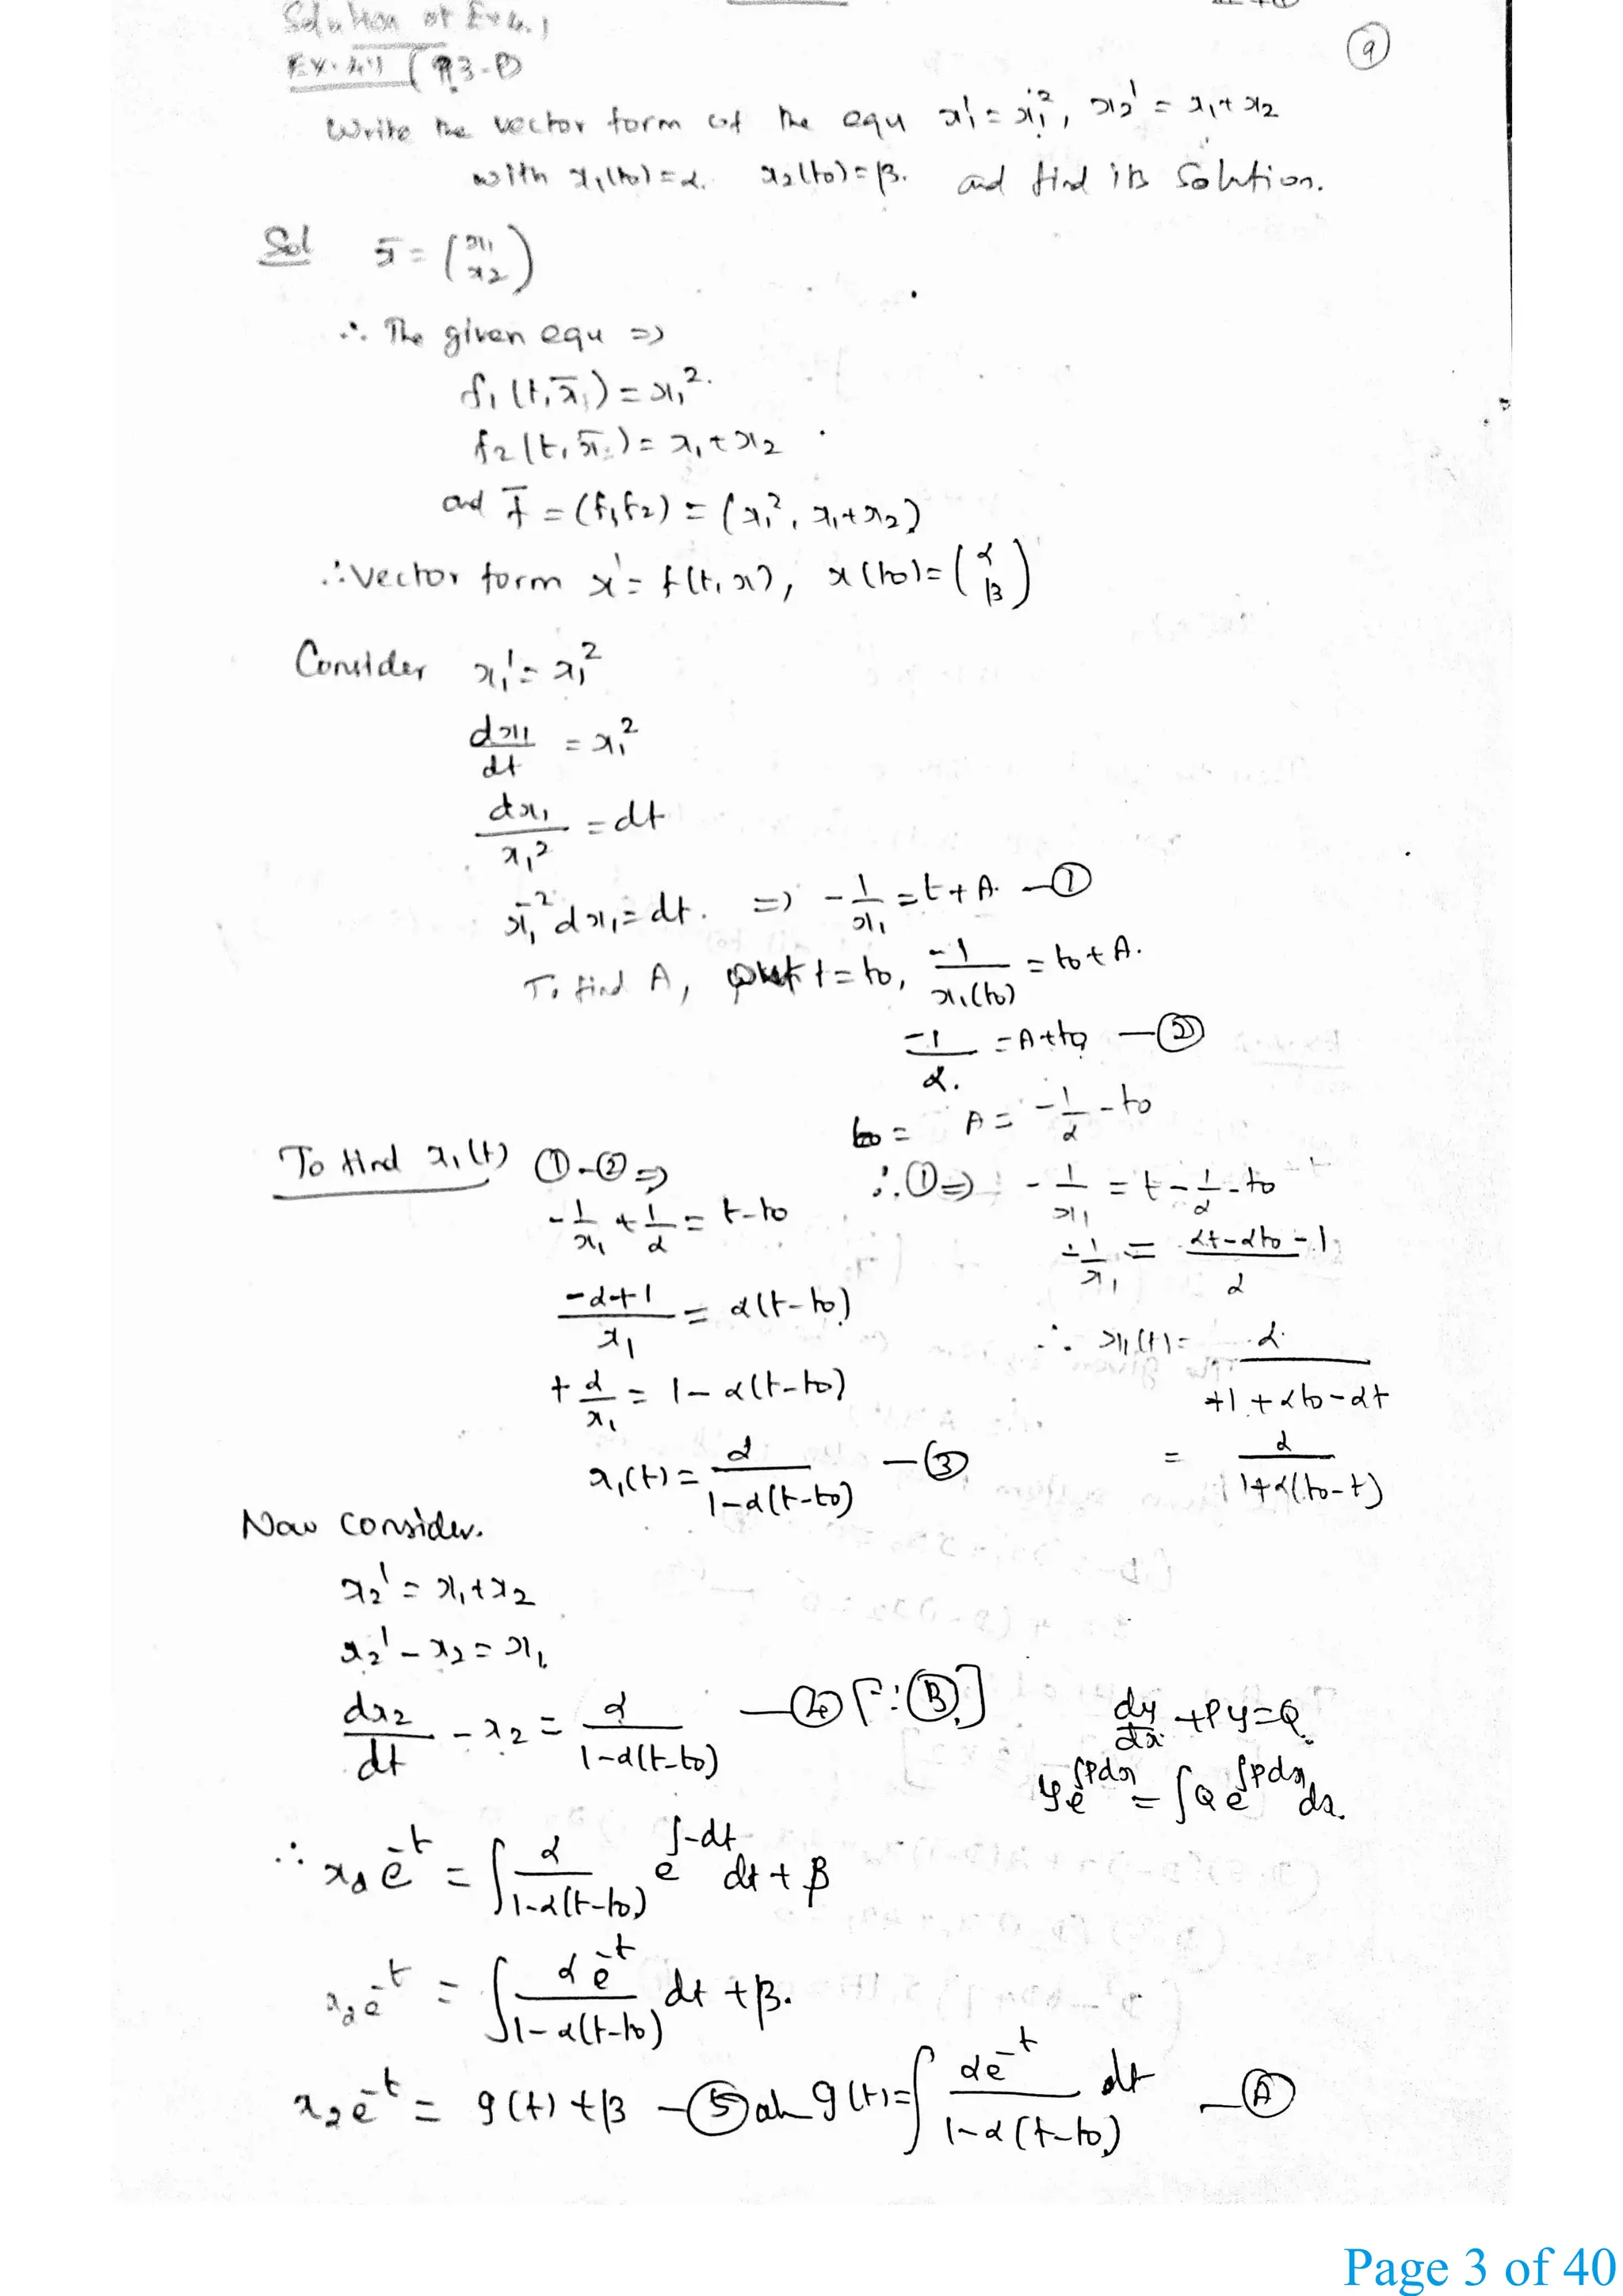 Solution of Ex 4.1
9
Ex. 4.1 (93-P)
Write the vector form of the equ x₁' = x₁², x₂' = x₁ + x₂
with x₁(t₀) = α. x₂(t₀) = β. and find its solution.
Sol x̄ = (x₁ x₂)
∴ The given equ ⇒
f₁(t, x̄) = x₁².
f₂(t, x̄) = x₁ + x₂
and f̄ = (f₁, f₂) = (x₁², x₁ + x₂)
∴ vector form x' = f(t, x), x(t₀) = (α β)
Consider x₁' = x₁²
dx₁/dt = x₁²
dx₁/x₁² = dt
x₁⁻² dx₁ = dt. ⇒ -1/x₁ = t + A. —①
To find A, put t = t₀, -1/x₁(t₀) = t₀ + A.
-1/α. = A + t₀ —②
t₀ = A = -1/α - t₀
To find x₁(t) ① - ② ⇒
-1/x₁ + 1/α = t - t₀
(-α + 1)/x₁ = α(t - t₀)
+ α/x₁ = 1 - α(t - t₀)
x₁(t) = α/(1 - α(t - t₀)) —③
∴ ① ⇒ -1/x₁ = t - 1/α - t₀
-1/x₁ = (αt - αt₀ - 1)/α
∴ x₁(t) = α/(+1 + αt₀ - αt)
= α/(1 + α(t₀ - t))
Now consider.
x₂' = x₁ + x₂
x₂' - x₂ = x₁
dx₂/dt - x₂ = α/(1 - α(t - t₀)) —④ [∵ ③.]
dy/dx + Py = Q.
y e^∫Pdx = ∫Q e^∫Pdx dx.
∴ x₂ e⁻ᵗ = ∫ α/(1 - α(t - t₀)) e^∫-dt dt + β
x₂ e⁻ᵗ = ∫ α e⁻ᵗ/(1 - α(t - t₀)) dt + β.
x₂ e⁻ᵗ = g(t) + β —⑤ g(t) = ∫ α e⁻ᵗ/(1 - α(t - t₀)) dt —Ⓐ
Page 3 of 40